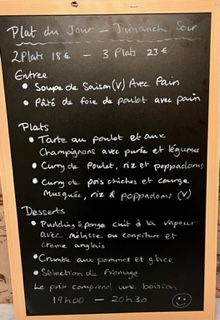 Plat du Jour – Dimanche Soir
2 Plats 18€ – 3 Plats 23€
Entree
• Soupe de Saison (V) Avec Pain
• Pâté de foie de poulet avec pain
Plats
• Tarte au poulet et aux
Champignons avec purée et légumes
• Curry de Poulet, riz et poppadoms
• Curry de pois chiches et courge
Musquée, riz & poppadoms (V)
Desserts
• Pudding éponge cuit à la vapeur
avec Mélasse ou confiture et
creme anglais
• Crumble aux pommes et glace
• Sélection de Fromage
Le prix comprend une boisson
19h00 – 20h30